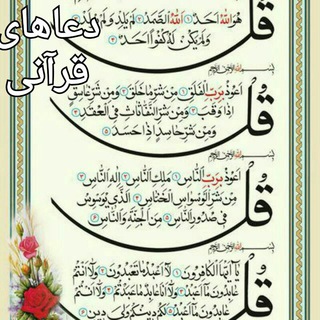 دعاهای
قرآنی
قُلْ
هُوَ اللَّهُ أَحَدٌ ۝١ اللَّهُ الصَّمَدُ ۝٢ لَمْ يَلِدْ وَلَمْ يُولَدْ ۝٣
وَلَمْ يَكُنْ لَهُ كُفُوًا أَحَدٌ ۝٤
بسم الله الرحمن الرحيم
قُلْ
أَعُوذُ بِرَبِّ الْفَلَقِ ۝١ مِنْ شَرِّ مَا خَلَقَ ۝٢ وَمِنْ شَرِّ غَاسِقٍ
إِذَا وَقَبَ ۝٣ وَمِنْ شَرِّ النَّفَّاثَاتِ فِي الْعُقَدِ ۝٤
وَمِنْ شَرِّ حَاسِدٍ إِذَا حَسَدَ ۝٥
بسم الله الرحمن الرحيم
قُلْ
أَعُوذُ بِرَبِّ النَّاسِ ۝١ مَلِكِ النَّاسِ ۝٢ إِلَٰهِ النَّاسِ ۝٣
مِنْ شَرِّ الْوَسْوَاسِ الْخَنَّاسِ ۝٤ الَّذِي يُوَسْوِسُ
فِي صُدُورِ النَّاسِ ۝٥ مِنَ الْجِنَّةِ وَالنَّاسِ ۝٦
بسم الله الرحمن الرحيم
قُلْ
يَا أَيُّهَا الْكَافِرُونَ ۝١ لَا أَعْبُدُ مَا تَعْبُدُونَ ۝٢ وَلَا أَنْتُمْ
عَابِدُونَ مَا أَعْبُدُ ۝٣ وَلَا أَنَا عَابِدٌ مَا عَبَدْتُمْ ۝٤ وَلَا أَنْتُمْ
عَابِدُونَ مَا أَعْبُدُ ۝٥ لَكُمْ دِينُكُمْ وَلِيَ دِينِ ۝٦